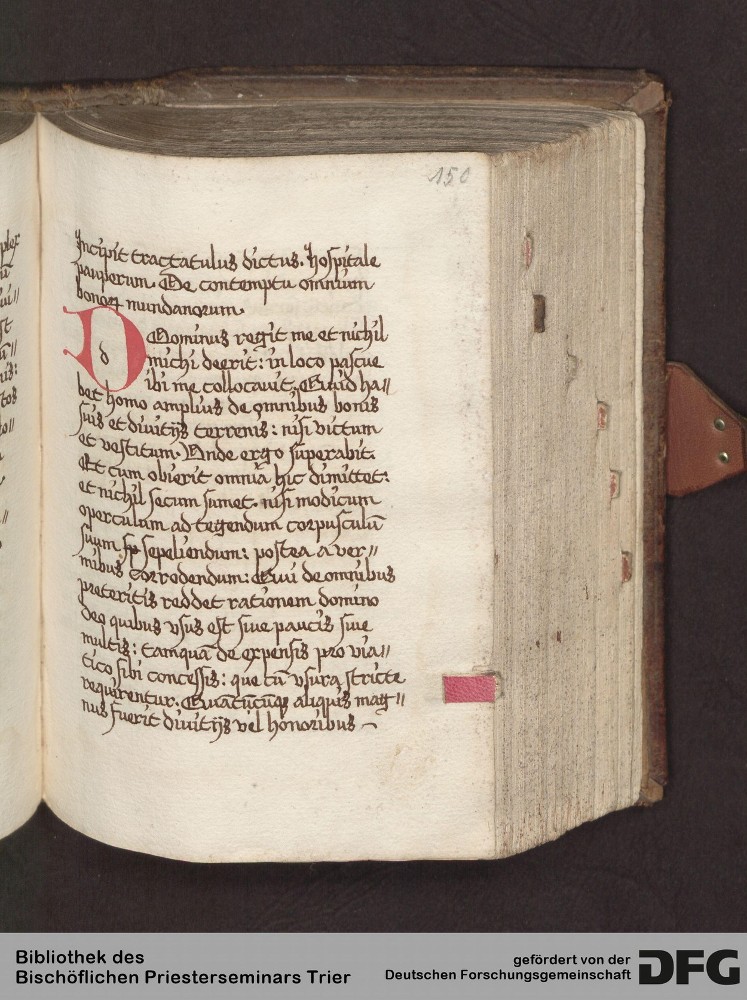 150
Incipit tractatulus dictus. Hospitale
pauperum. De contemptu omnium
bonoꝝ mundanorum.
D d
Dominus regit me et nichil
michi deerit: in loco pascue
ibi me collocauit. Quid ha//
bet homo amplius de omnibus bonis
suis et diuitijs terrenis: nisi victum
et vestitum. Vnde ergo superabit.
Et cum obierit omnīa hic dimittet:
et nichil secum sumet. nisi modicum
operculum ad tegendum corpusculū
suum sepeliendum: postea a ver//
mibus corrodendum: Qui de omnibus
preteritis reddet rationem domino
deo quibus vsus est siue paucis siue
multis: tamquā de expensis pro via//
tico sibi concessis: que cū vsura stricte
requirentur. aliquis mag//
nus fuerit diuitijs vel honoribus
plex
Bibliothek des
Bischöflichen Priesterseminars Trier
gefördert von der
Deutschen Forschungsgemeinschaft
DFG